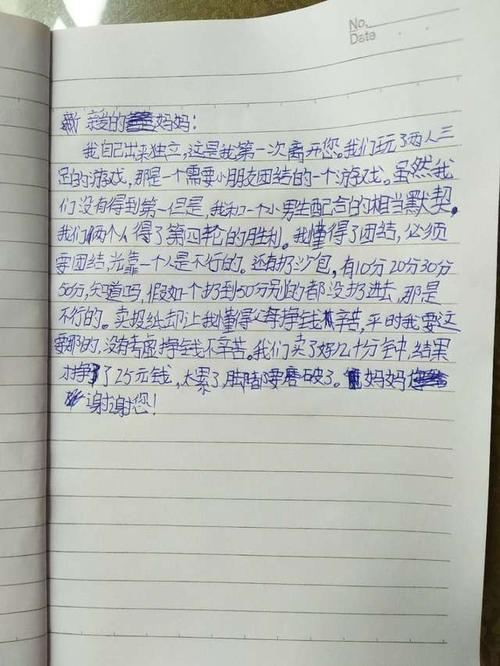 No.
Date
亲爱的妈妈:
我自己出来独立,这是我第一次离开您。我们玩了两人三
足的游戏,那是一个需要小朋友团结的一个游戏。虽然我
们没有得到第一但是,我和一个小男生配合的相当默契。
我们俩个人得了第四轮的胜利。我懂得了团结,必须
要团结,光靠一个人是不行的。还有扔沙包,有10分20分30分
50分,知道吗,假如一个扔到50分别的都没扔进去,那是
不行的。卖报纸却让我懂得父母挣钱不辛苦,平时我要这
要那的,没有考虑挣钱不辛苦。我们卖了好几十分钟,结果
才挣了25元钱,太累了,脚都要磨破了。妈妈
谢谢您!